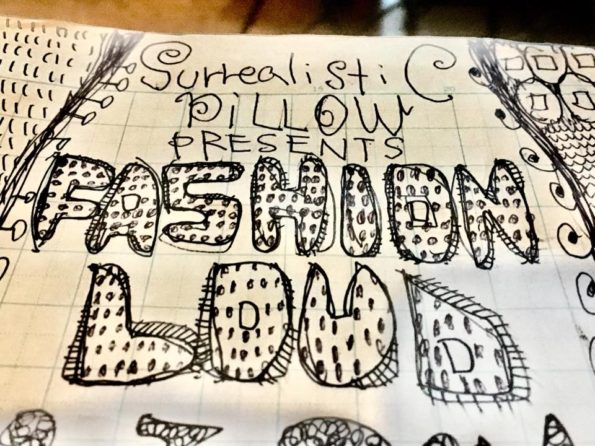 Surrealistic
PiLLOW
PRESENTS
FASHION
LOUD